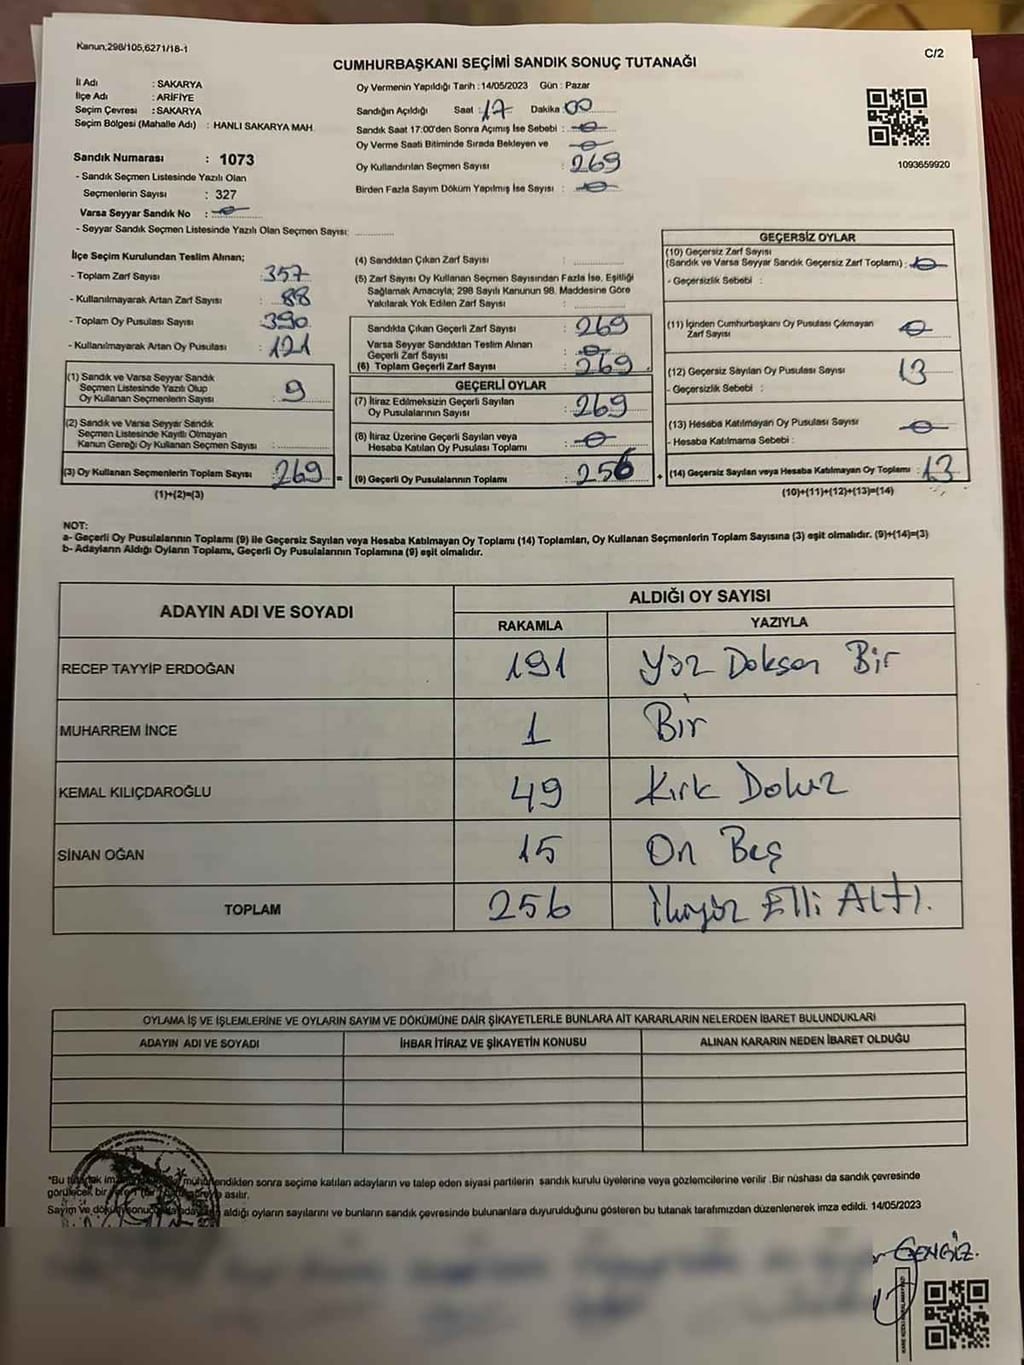 Kanun,298/105,6271/18-1
C/2
CUMHURBAŞKANI SEÇİMİ SANDIK SONUÇ TUTANAĞI
İl Adı : SAKARYA
İlçe Adı : ARİFİYE
Seçim Çevresi : SAKARYA
Seçim Bölgesi (Mahalle Adı) : HANLI SAKARYA MAH.
Sandık Numarası : 1073
- Sandık Seçmen Listesinde Yazılı Olan
Seçmenlerin Sayısı : 327
Varsa Seyyar Sandık No : 0
- Seyyar Sandık Seçmen Listesinde Yazılı Olan Seçmen Sayısı:
Oy Vermenin Yapıldığı Tarih : 14/05/2023 Gün : Pazar
Sandığın Açıldığı Saat : 17 Dakika 00
Sandık Saat 17:00'den Sonra Açımış İse Sebebi : 0
Oy Verme Saati Bitiminde Sırada Bekleyen ve : 0
Oy Kullandırılan Seçmen Sayısı : 269
Birden Fazla Sayım Döküm Yapılmış İse Sayısı : 0
1093659920
İlçe Seçim Kurulundan Teslim Alınan;
- Toplam Zarf Sayısı : 357
- Kullanılmayarak Artan Zarf Sayısı : 88
- Toplam Oy Pusulası Sayısı : 390
- Kullanılmayarak Artan Oy Pusulası : 121
(1) Sandık ve Varsa Seyyar Sandık
Seçmen Listesinde Yazılı Olup
Oy Kullanan Seçmenlerin Sayısı : 9
(2) Sandık ve Varsa Seyyar Sandık
Seçmen Listesinde Kayıtlı Olmayan
Kanun Gereği Oy Kullanan Seçmen Sayısı :
(3) Oy Kullanan Seçmenlerin Toplam Sayısı : 269 =
(1)+(2)=(3)
(4) Sandıktan Çıkan Zarf Sayısı :
(5) Zarf Sayısı Oy Kullanan Seçmen Sayısından Fazla İse, Eşitliği
Sağlamak Amacıyla; 298 Sayılı Kanunun 98. Maddesine Göre
Yakılarak Yok Edilen Zarf Sayısı :
Sandıkta Çıkan Geçerli Zarf Sayısı : 269
Varsa Seyyar Sandıktan Teslim Alınan
Geçerli Zarf Sayısı : 0
(6) Toplam Geçerli Zarf Sayısı : 269
GEÇERLİ OYLAR
(7) İtiraz Edilmeksizin Geçerli Sayılan
Oy Pusulalarının Sayısı : 269
(8) İtiraz Üzerine Geçerli Sayılan veya
Hesaba Katılan Oy Pusulası Toplamı : 0
(9) Geçerli Oy Pusulalarının Toplamı : 256 +
GEÇERSİZ OYLAR
(10) Geçersiz Zarf Sayısı
(Sandık ve Varsa Seyyar Sandık Geçersiz Zarf Toplamı) : 0
- Geçersizlik Sebebi :
(11) İçinden Cumhurbaşkanı Oy Pusulası Çıkmayan
Zarf Sayısı : 0
(12) Geçersiz Sayılan Oy Pusulası Sayısı : 13
- Geçersizlik Sebebi :
(13) Hesaba Katılmayan Oy Pusulası Sayısı : 0
- Hesaba Katılmama Sebebi :
(14) Geçersiz Sayılan veya Hesaba Katılmayan Oy Toplamı : 13
(10)+(11)+(12)+(13)=(14)
NOT:
a- Geçerli Oy Pusulalarının Toplamı (9) ile Geçersiz Sayılan veya Hesaba Katılmayan Oy Toplamı (14) Toplamları, Oy Kullanan Seçmenlerin Toplam Sayısına (3) eşit olmalıdır. (9)+(14)=(3)
b- Adayların Aldığı Oyların Toplamı, Geçerli Oy Pusulalarının Toplamına (9) eşit olmalıdır.
ADAYIN ADI VE SOYADI
ALDIĞI OY SAYISI
RAKAMLA YAZIYLA
RECEP TAYYİP ERDOĞAN 191 Yüz Doksan Bir
MUHARREM İNCE 1 Bir
KEMAL KILIÇDAROĞLU 49 Kırk Dokuz
SİNAN OĞAN 15 On Beş
TOPLAM 256 İkiyüz Elli Altı.
OYLAMA İŞ VE İŞLEMLERİNE VE OYLARIN SAYIM VE DÖKÜMÜNE DAİR ŞİKAYETLERLE BUNLARA AİT KARARLARIN NELERDEN İBARET BULUNDUKLARI
ADAYIN ADI VE SOYADI İHBAR İTİRAZ VE ŞİKAYETİN KONUSU ALINAN KARARIN NEDEN İBARET OLDUĞU
*Bu mühürlendikten sonra seçime katılan adayların ve talep eden siyasi partilerin sandık kurulu üyelerine veya gözlemcilerine verilir .Bir nüshası da sandık çevresinde
görülecek bir asılır.
Sayım ve döküm aldığı oyların sayılarını ve bunların sandık çevresinde bulunanlara duyurulduğunu gösteren bu tutanak tarafımızdan düzenlenerek imza edildi. 14/05/2023
CENGİZ.